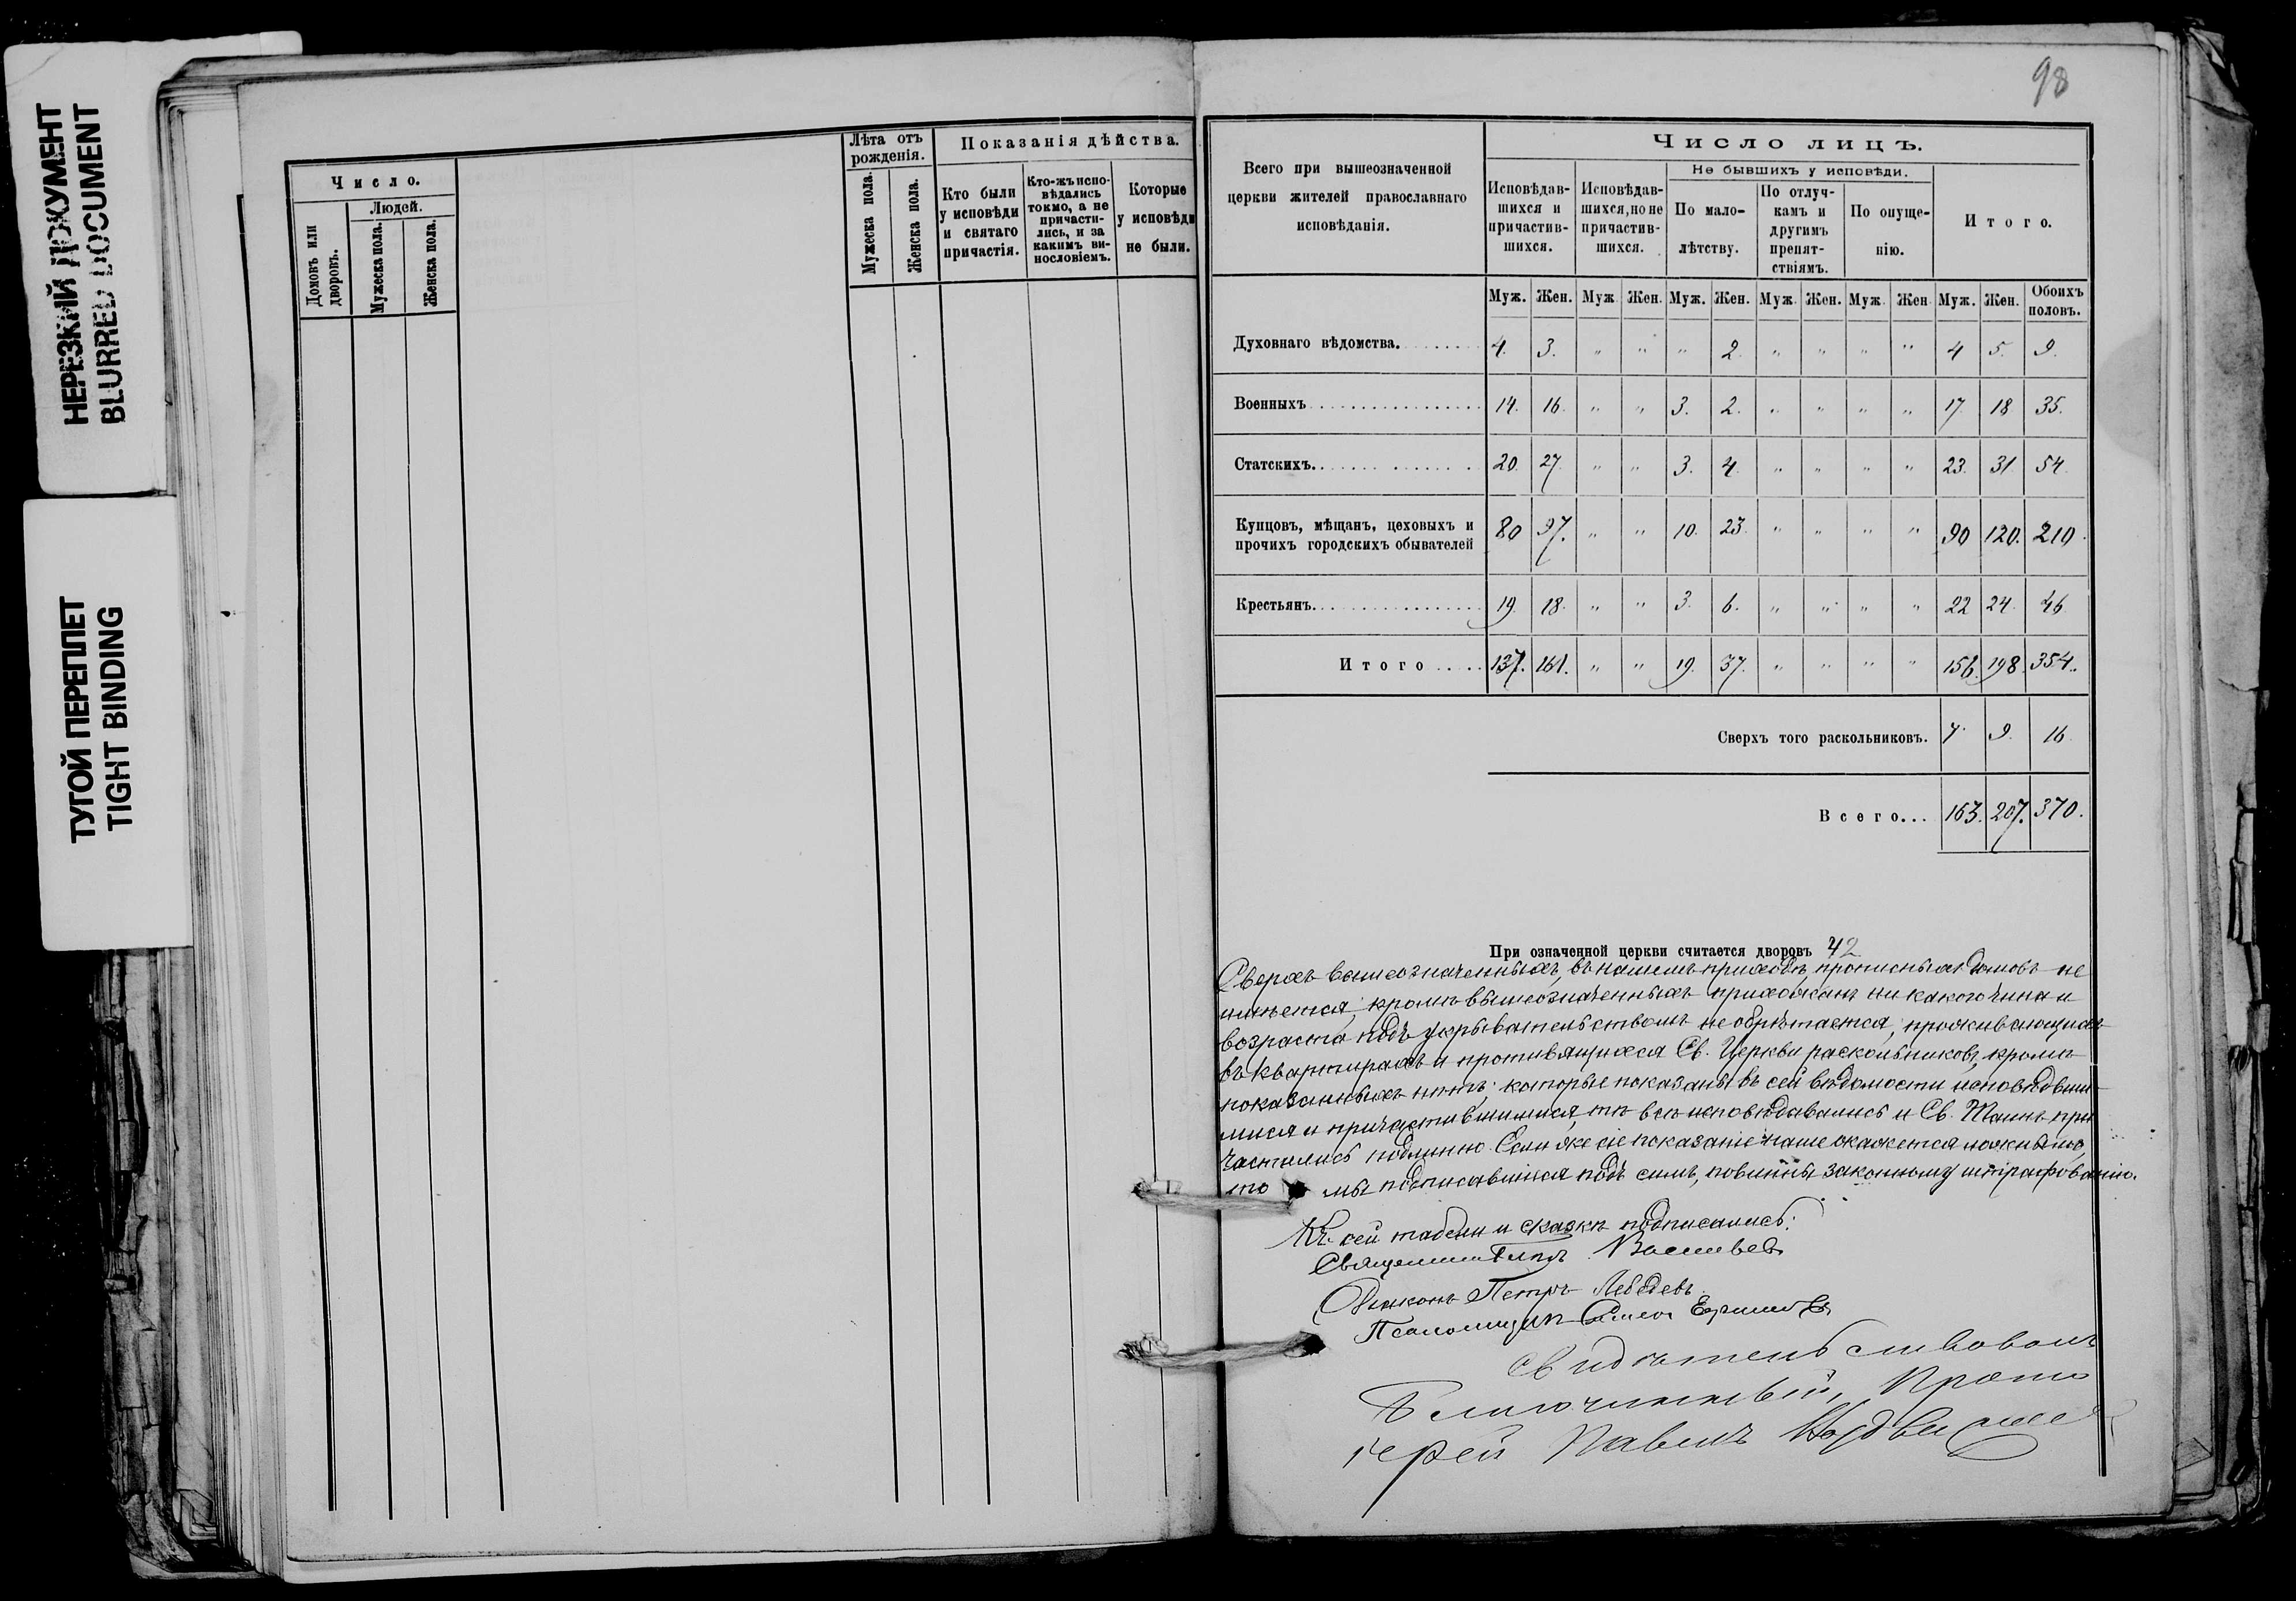 НЕРЕЗКИЙ ДОКУМЕНТ
BLURRED DOCUMENT
ТУГОЙ ПЕРЕПЛЕТ
TIGHT BINDING
Число.
Домовъ или дворовъ.
Людей.
Мужеска пола.
Женска пола.
Лѣта отъ рожденія.
Мужеска пола.
Женска пола.
Показанія дѣйства.
Кто были у исповѣди и святаго причастія.
Кто-жъ испо-вѣдались токмо, а не причасти-лись, и за какимъ ви-нословіемъ.
Которые у исповѣди не были.
98
Всего при вышеозначенной
церкви жителей православнаго
исповѣданія.
Число лицъ.
Исповѣдав-шихся и причастив-шихся.
Исповѣдав-шихся, но не причастив-шихся.
Не бывшихъ у исповѣди.
По мало-лѣтству.
По отлуч-камъ и другимъ препят-ствіямъ.
По опуще-нію.
Итого.
Муж. Жен. Муж. Жен. Муж. Жен. Муж. Жен. Муж. Жен. Муж. Жен. Обоихъ половъ.
Духовнаго вѣдомства. 4. 3. " " " 2. " " " " 4 5. 9.
Военныхъ 14. 16. " " 3. 2. " " " " 17. 18 35.
Статскихъ. 20. 27. " " 3. 4. " " " " 23. 31 54.
Купцовъ, мѣщанъ, цеховыхъ и
прочихъ городскихъ обывателей 80 97. " " 10. 23. " " " " 90 120. 210.
Крестьянъ. 19. 18. " " 3. 6. " " " " 22 24. 46
Итого 137. 161. " " 19. 37. " " " " 156. 198. 354.
Сверхъ того раскольниковъ. 7. 9. 16.
Всего... 163. 207. 370.
При означенной церкви считается дворовъ 42
Сверхъ вышеозначенныхъ, въ нашемъ приходѣ прописныхъ домовъ не
имѣется, кромѣ вышеозначенныхъ прихожанъ ни какого чина и
возраста подъ укрывательствомъ не обрѣтается, проживающихъ
въ квартирахъ и противящихся Св. Церкви раскольниковъ, кромѣ
показанныхъ нѣтъ; которые показаны въ сей вѣдомости исповѣдвши-
мися и причастившимися, тѣ всѣ исповѣдывались и Св. Таинъ при-
частились подлинно. Если же сіе показаніе наше окажется ложнымъ,
то мы подписавшіися подъ симъ, повинны законному штрафованію.
Къ сей табели и сказкѣ подписались:
Священникъ Васильевъ
Діаконъ Петръ Лебедевъ
Псаломщикъ
Свидѣтельствовалъ
Благочинный, Прото
іерей Павелъ